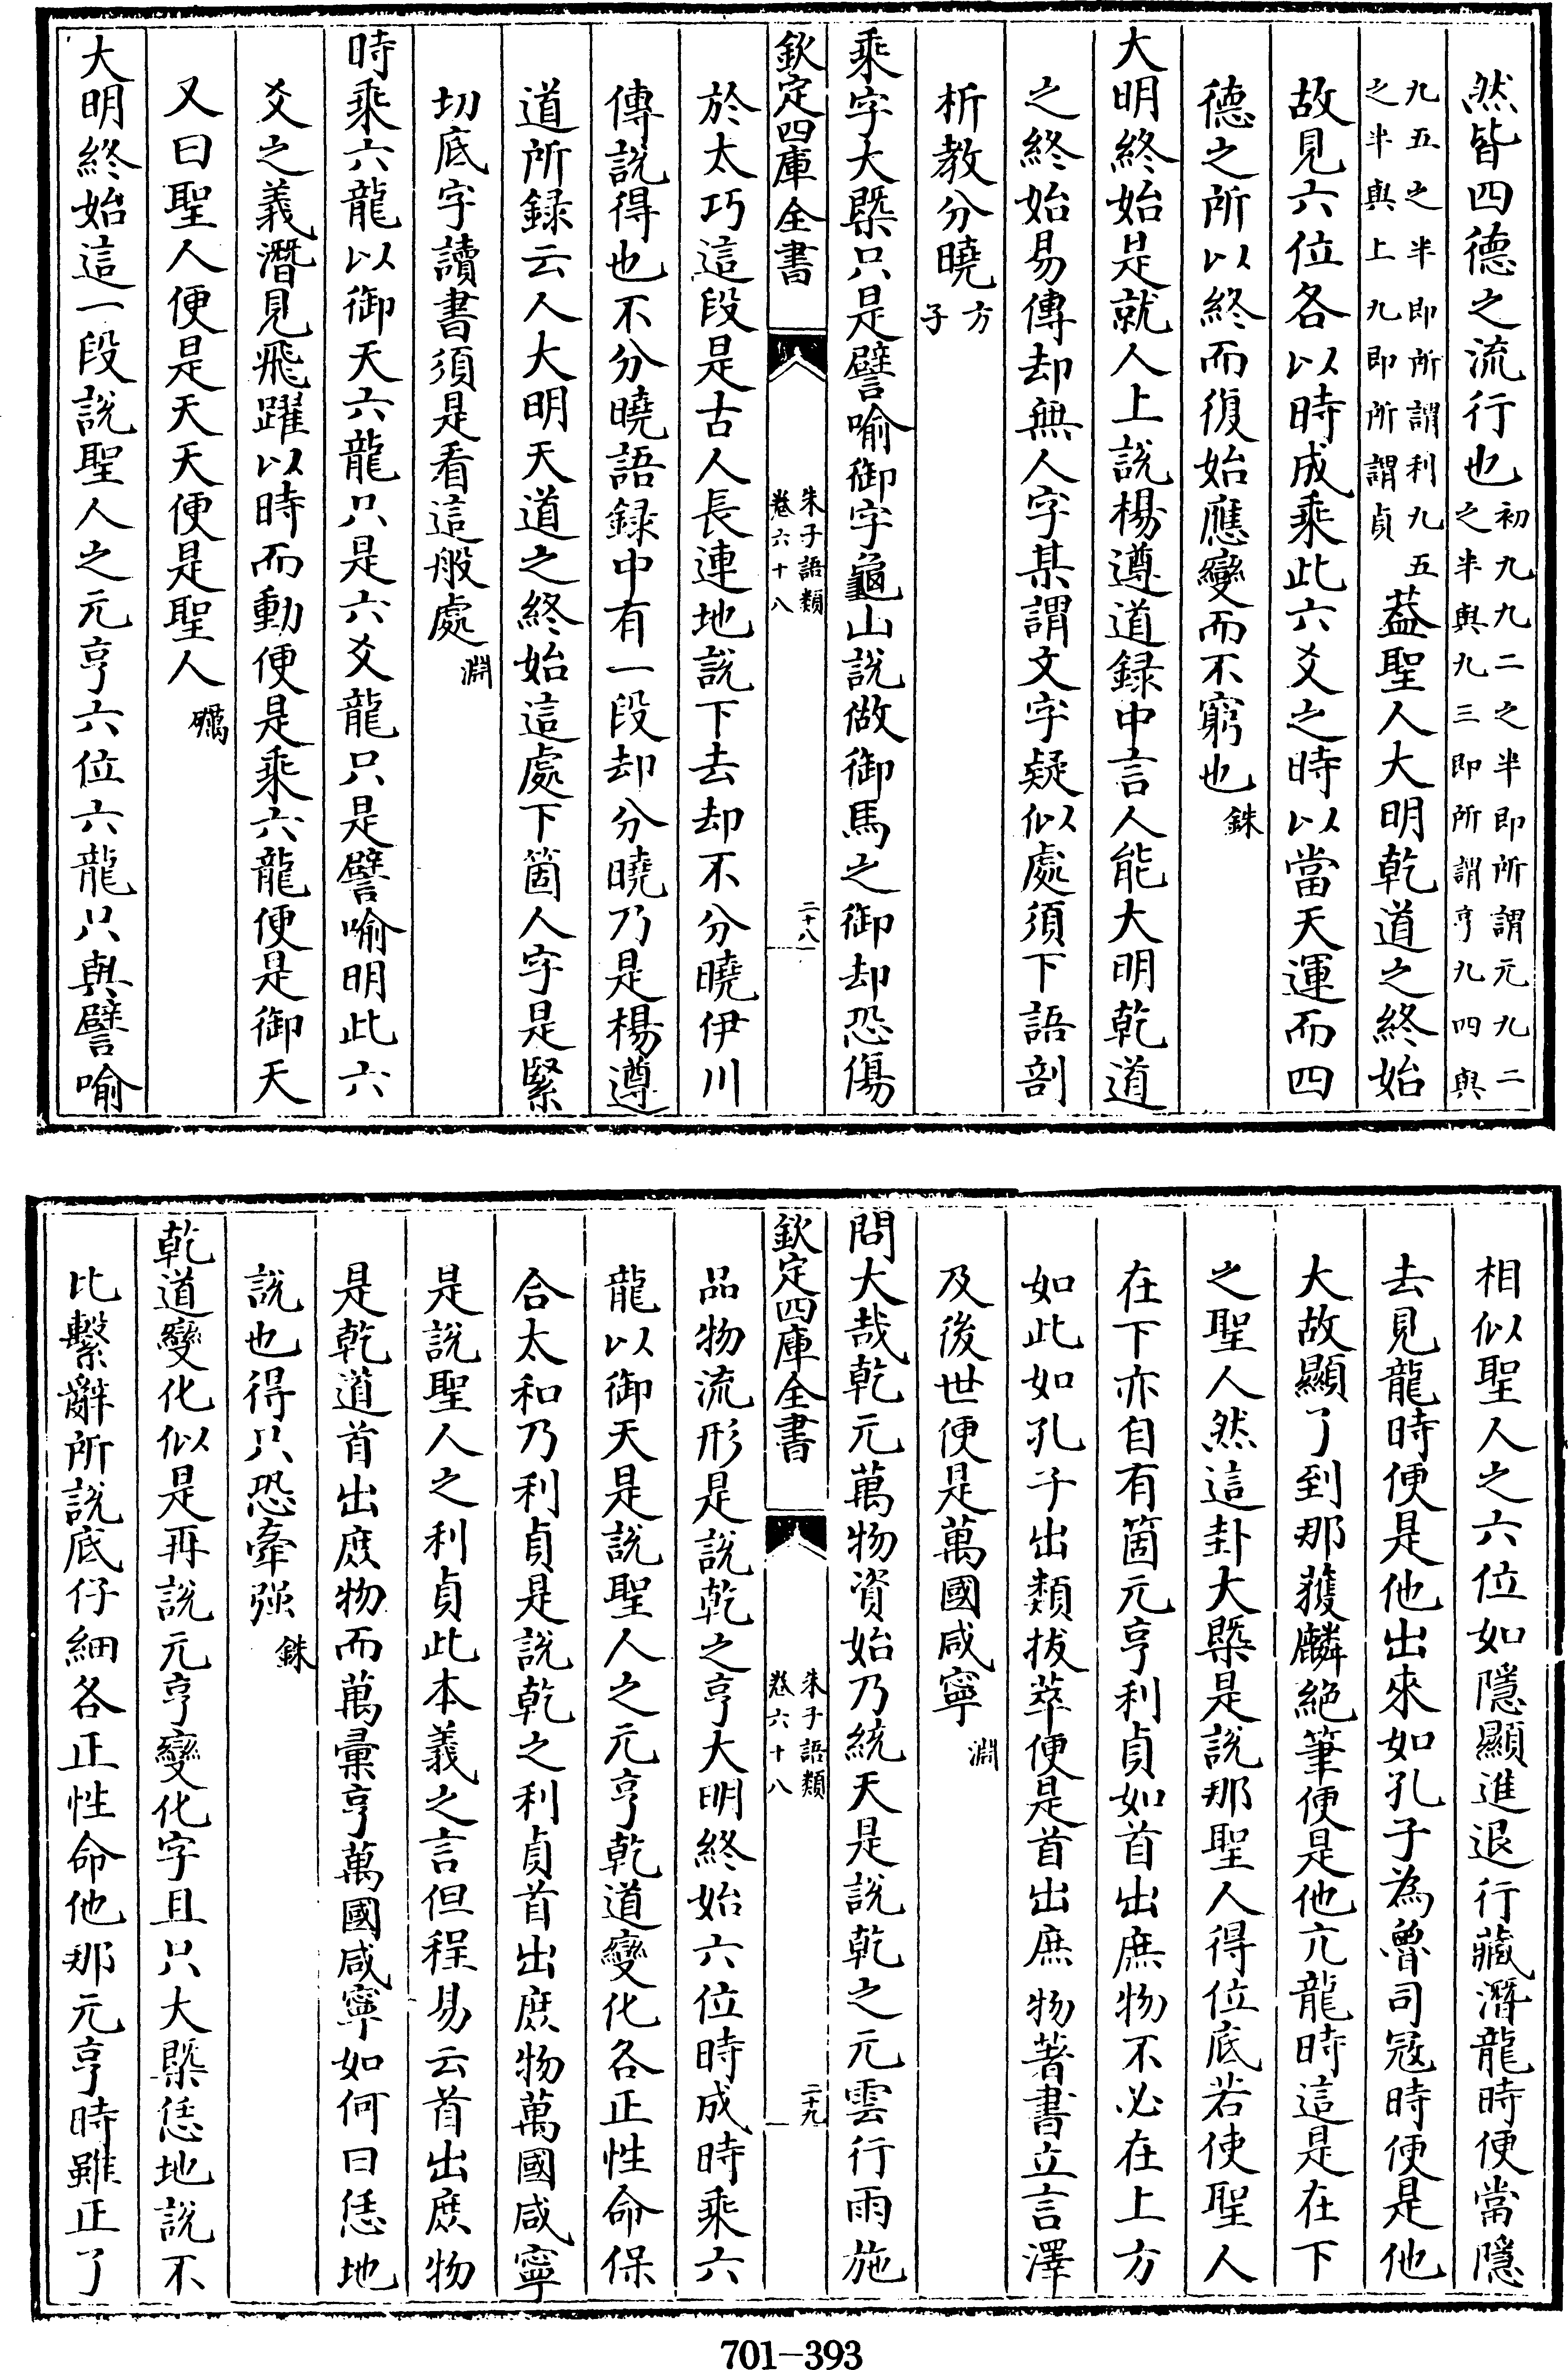 然皆四德之流行也初九九二之半即所謂元九二之半與九三即所謂亨九四與
九五之半即所謂利九五之半與上九即所謂貞葢聖人大明乾道之終始
故見六位各以時成乘此六爻之時以當天運而四
德之所以終而復始應變而不窮也銖
大明終始是就人上說楊遵道録中言人能大明乾道
之終始易傳却無人字某謂文字疑似處須下語剖
析教分曉方子
乘字大槩只是譬喻御字龜山說做御馬之御却恐傷
欽定四庫全書
朱子語類
卷六十八
二十八
於太巧這段是古人長連地說下去却不分曉伊川
傳說得也不分曉語録中有一段却分曉乃是楊遵
道所録云人大明天道之終始這處下箇人字是緊
切底字讀書須是看這般處淵
時乘六龍以御天六龍只是六爻龍只是譬喻明此六
爻之義潛見飛躍以時而動便是乘六龍便是御天
又曰聖人便是天天便是聖人礪
大明終始這一段說聖人之元亨六位六龍只與譬喻
相似聖人之六位如隱顯進退行藏潛龍時便當隱
去見龍時便是他出來如孔子為魯司寇時便是他
大故顯了到那獲麟絶筆便是他亢龍時這是在下
之聖人然這卦大槩是說那聖人得位底若使聖人
在下亦自有箇元亨利貞如首出庶物不必在上方
如此如孔子出類拔萃便是首出庶物著書立言澤
及後世便是萬國咸寧淵
問大哉乾元萬物資始乃統天是說乾之元雲行雨施
欽定四庫全書
朱子語類
卷六十八
二十九
品物流形是說乾之亨大明終始六位時成時乘六
龍以御天是說聖人之元亨乾道變化各正性命保
合太和乃利貞是說乾之利貞首出庶物萬國咸寧
是說聖人之利貞此本義之言但程易云首出庶物
是乾道首出庶物而萬彚亨萬國咸寧如何曰恁地
說也得只恐牽强銖
乾道變化似是再說元亨變化字且只大槩恁地說不
比繫辭所說底仔細各正性命他那元亨時雖正了
701-393